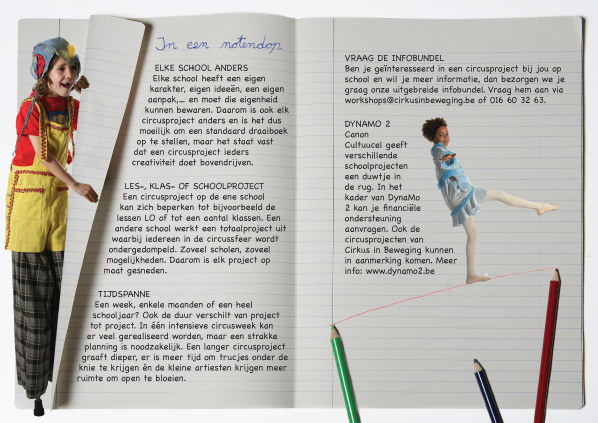 In een notendop
ELKE SCHOOL ANDERS
Elke school heeft een eigen
karakter, eigen ideeën, een eigen
aanpak,... en moet die eigenheid
kunnen bewaren. Daarom is ook elk
circusproject anders en is het dus
moeilijk om een standaard draaiboek
op te stellen, maar het staat vast
dat een circusproject ieders
creativiteit doet bovendrijven.
LES-, KLAS- OF SCHOOLPROJECT
Een circusproject op de ene school
kan zich beperken tot bijvoorbeeld de
lessen LO of tot een aantal klassen. Een
andere school werkt een totaalproject uit
waarbij iedereen in de circussfeer wordt
ondergedompeld. Zoveel scholen, zoveel
mogelijkheden. Daarom is elk project op
maat gesneden.
TIJDSPANNE
Een week, enkele maanden of een heel
schooljaar? Ook de duur verschilt van project
tot project. In één intensieve circusweek kan
er veel gerealiseerd worden, maar een strakke
planning is noodzakelijk. Een langer circusproject
graaft dieper, er is meer tijd om trucjes onder de
knie te krijgen én de kleine artiesten krijgen meer
ruimte om open te bloeien.
VRAAG DE INFOBUNDEL
Ben je geïnteresseerd in een circusproject bij jou op
school en wil je meer informatie, dan bezorgen we je
graag onze uitgebreide infobundel. Vraag hem aan via
workshops@cirkusinbeweging.be of 016 60 32 63.
DYNAMO 2
Canon
Cultuucel geeft
verschillende
schoolprojecten
een duwtje in
de rug. In het
kader van DynaMo
2 kan je financiële
ondersteuning
aanvragen. Ook de
circusprojecten van
Cirkus in Beweging kunnen
in aanmerking komen. Meer
info: www.dynamo2.be